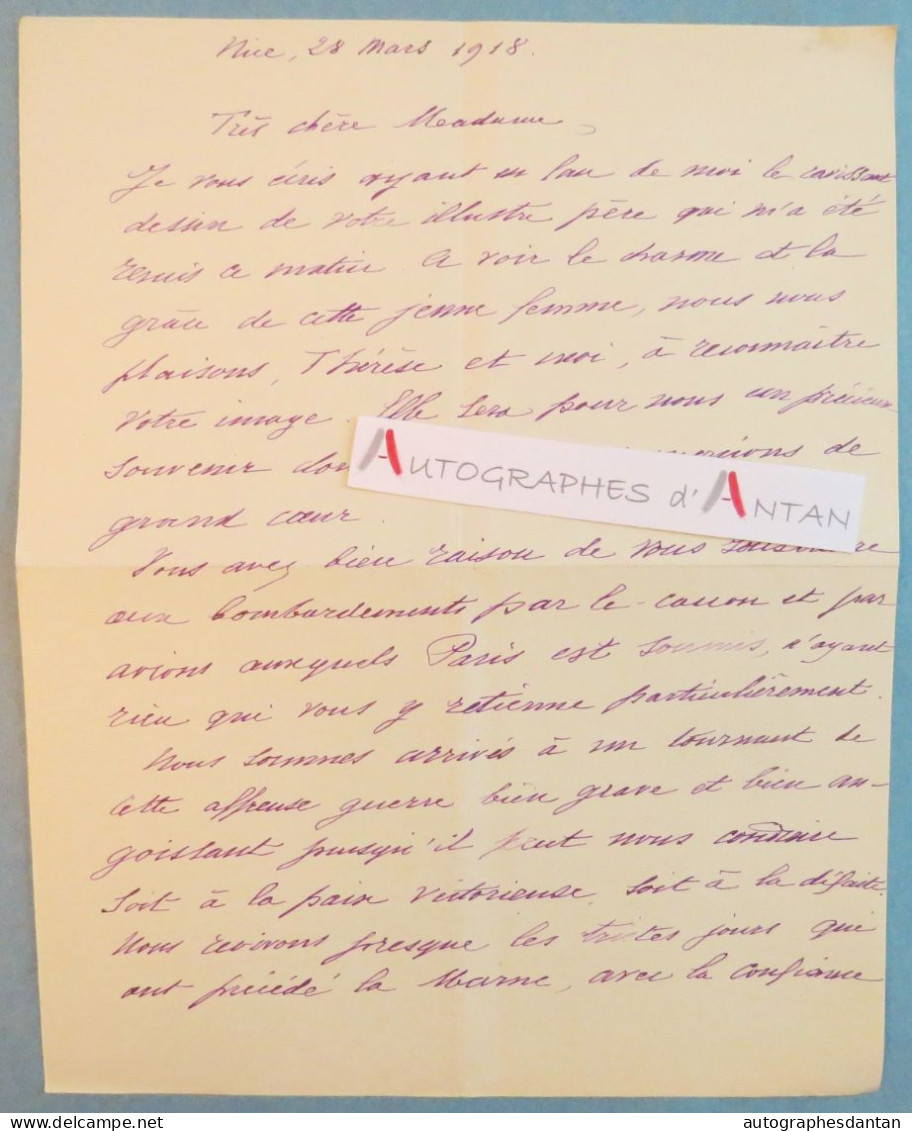 Nice, 28 Mars 1918.
Très chère Madame,
Je vous écris ayant en face de moi le ravissant
dessin de votre illustre père qui m'a été
remis ce matin. A voir le charme et la
grâce de cette jeune femme, nous nous
plaisons, Thérèse et moi, à reconnaître
votre image. Elle sera pour nous un précieux
souvenir de
grand cœur.
AUTOGRAPHES d'ANTAN
Vous avez bien raison de vous soustraire
aux bombardements par le canon et par
avions auxquels Paris est soumis, n'ayant
rien qui vous y retienne particulièrement.
Nous sommes arrivés à un tournant de
cette affreuse guerre bien grave et bien an-
goissant puisqu'il peut nous conduire
soit à la paix victorieuse, soit à la défaite.
Nous revivons presque les tristes jours qui
ont précédé la Marne, avec la confiance
delcampe.net
autographesdantan